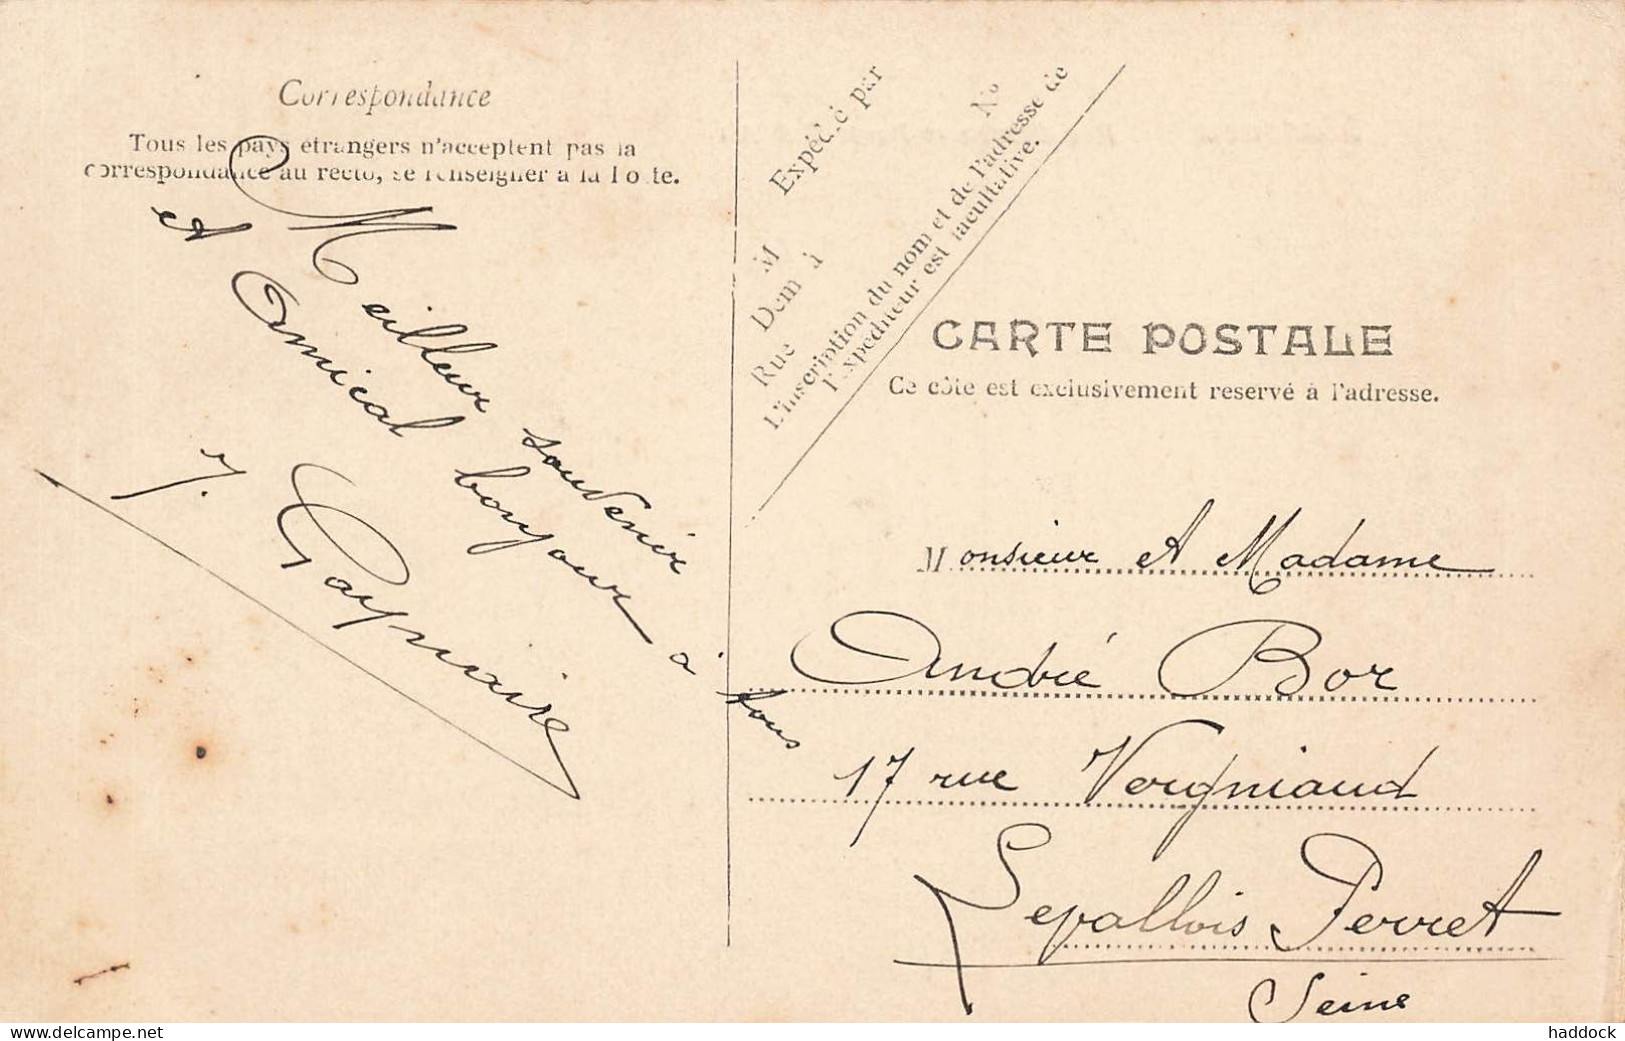 Correspondance
Tous les pays étrangers n'acceptent pas la
correspondance au recto, se renseigner à la Poste.
Meilleur souvenir
et Amical bonjour à tous
J.
Expédié par
M
Dem à
Rue
N°
L'inscription du nom et de l'adresse de
l'expéditeur est facultative.
CARTE POSTALE
Ce côté est exclusivement reservé à l'adresse.
Monsieur et Madame
André Bor
17 rue Vergniaud
Levallois Perret
Seine
www.delcampe.net
haddock